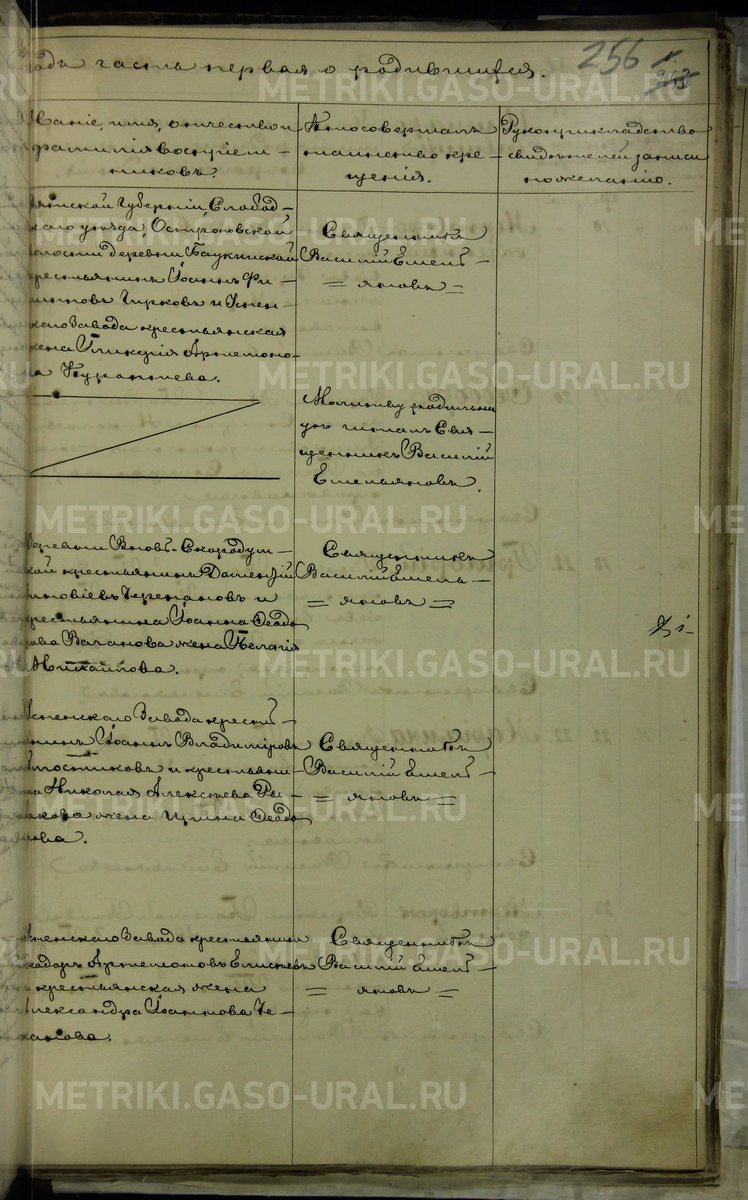 года часть первая о родившихся.
256
Званіе, имя, отчество и
фамилія воспріем-
никовъ.
Кто совершалъ
таинство кре-
щенія.
Рукоприкладство
свидѣтелей записи
по желанію.
Вятской Губерніи, Слобод-
скаго уѣзда,
волости деревни
крестьянинъ Іоаннъ Фи-
липповъ и Успен-
скаго Завода крестьянская
жена Гликерія Артемоно-
ва
Священникъ
Василій Емель-
= яновъ =
Молитву родильни
цѣ читалъ Свя-
щенникъ Василій
Емельяновъ.
деревни Вновь-Скородум-
ской крестьянинъ
Черепановъ и
крестьянина Іоанна Ѳеодо
рова Ваганова жена Пелагія
Михайлова.
Священникъ
Василій Емель-
= яновъ =
Успенскаго Завода кресть-
янинъ Іоаннъ Владиміровъ
и крестьяни-
на Николая Алексѣева
жена Ирина Ѳеодо
рова.
Священникъ
Василій Емель-
= яновъ =
Успенскаго Завода крестьянинъ
Ѳеодоръ Артемоновъ Елисѣевъ
и крестьянская жена
Александра Іоаннова
Священникъ
Василій Емель-
= яновъ =
METRIKI.GASO-URAL.RU